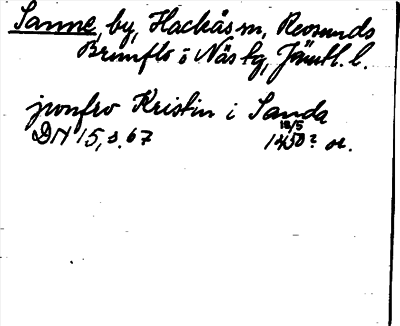 Sanne, by, Hackås sn, Revsunds
Brunflo o Näs tg, Jämtl. l.
jwnfrv Kristin i Sanda
18/5
DN 15, s. 67 1450? or.